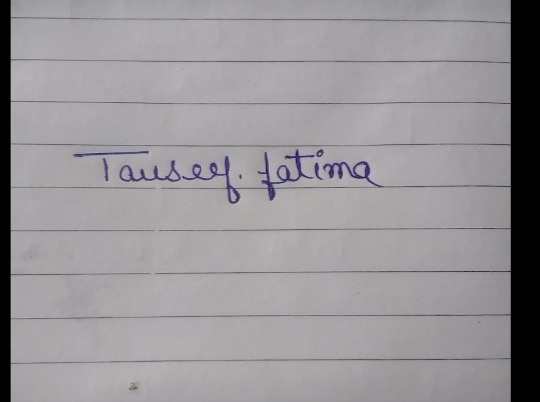 Tauseef. fatima